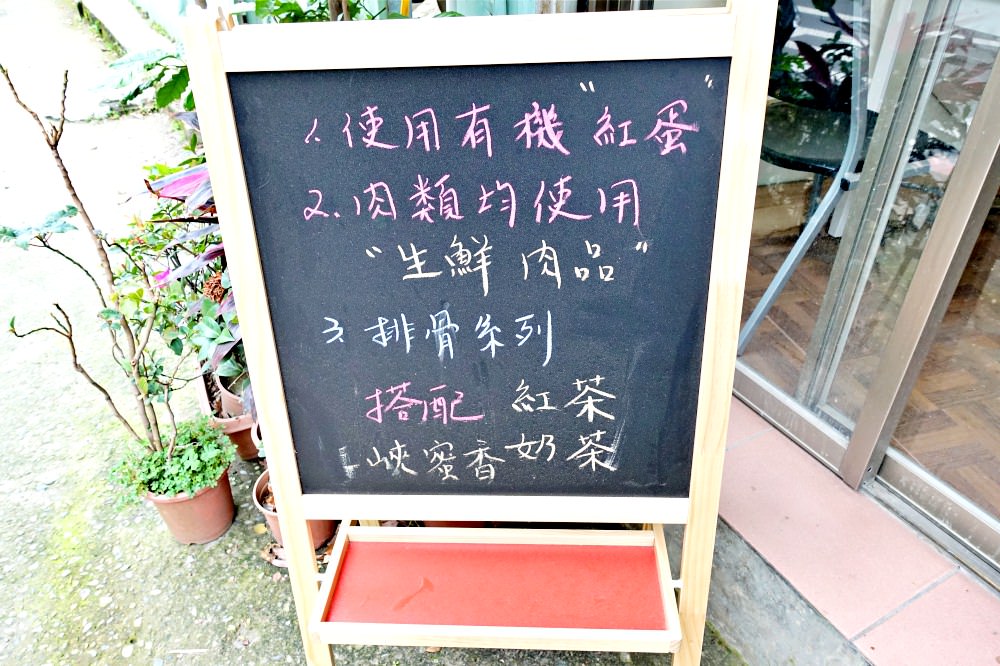 1. 使用有機 "紅蛋"
2. 肉類均使用
"生鮮肉品"
3. 排骨系列
搭配 紅茶
峽蜜香奶茶